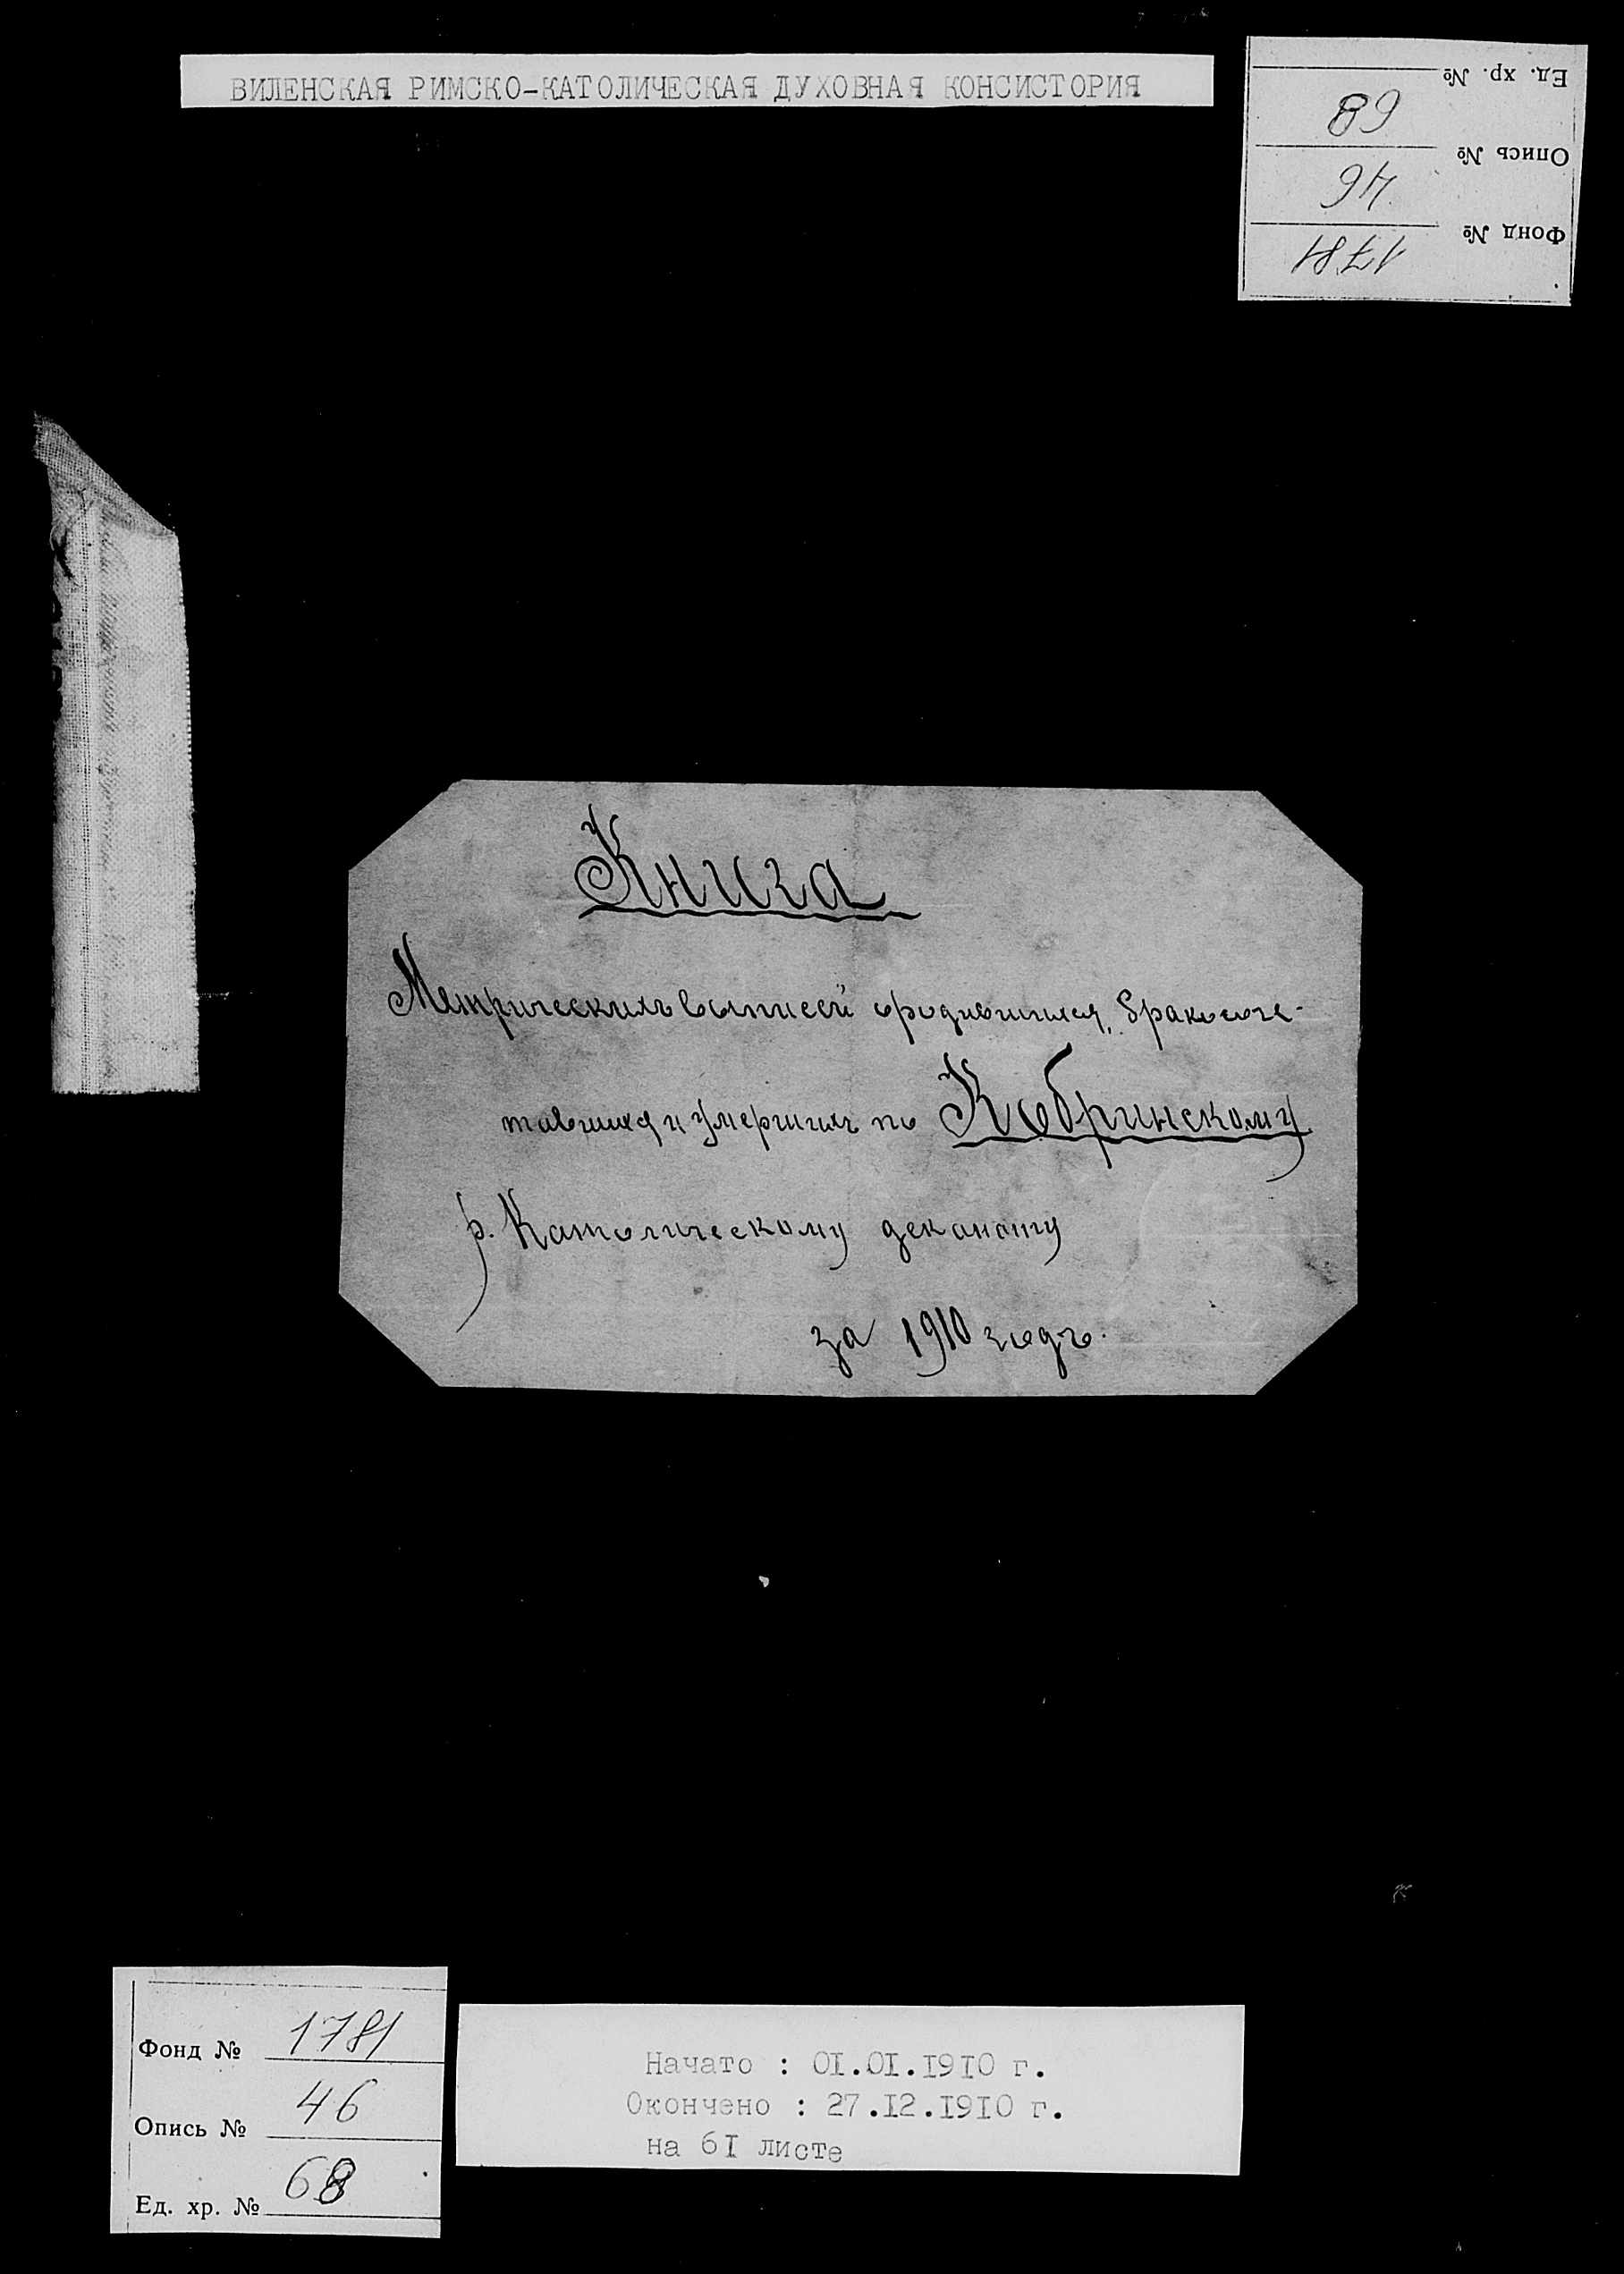 ВИЛЕНСКАЯ РИМСКО-КАТОЛИЧЕСКАЯ ДУХОВНАЯ КОНСИСТОРИЯ
Ед. хр. № 68
Опись № 46
Фонд № 1781
Книга
Метрическихъ выписей о родившихся, бракосоче-
тавшихся и умершихъ по Кобринскому
р. Католическому деканату
за 1910 годъ.
Фонд № 1781
Опись № 46
Ед. хр. № 68
Начато : 0I.0I.I9I0 г.
Окончено : 27.I2.I9I0 г.
на 6I листе